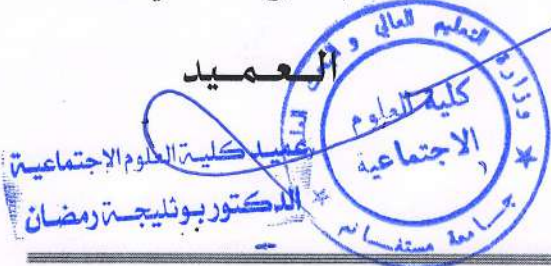 العميد
عميد كلية العلوم الاجتماعية
الدكتور بوثليجة رمضان
وزارة التعليم العالي و
كلية العلوم
الاجتماعية
جامعة مستغانم